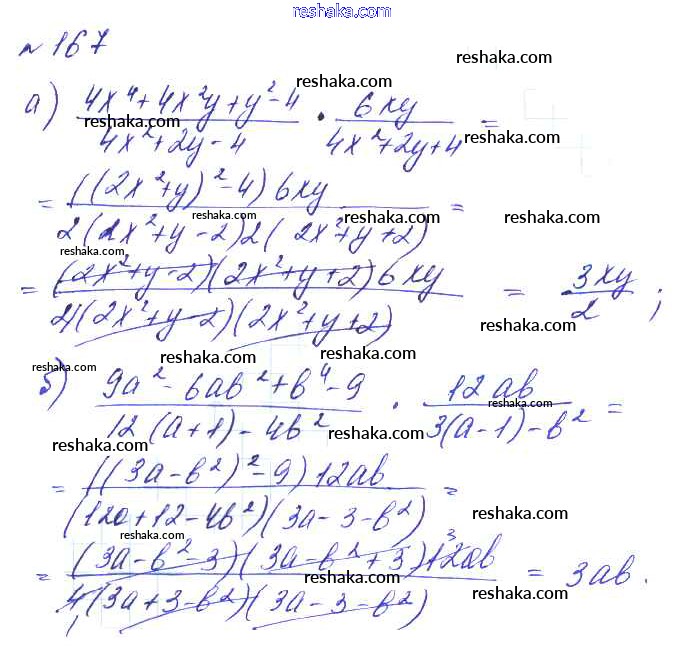 reshaka.com
№167
reshaka.com
а) (4x⁴+4x²y+y²-4)/(4x²+2y-4) · 6xy/(4x²+2y+4) =
reshaka.com
reshaka.com
reshaka.com
= ((2x²+y)²-4)6xy / 2(2x²+y-2)2(2x²+y+2) =
reshaka.com
reshaka.com
reshaka.com
reshaka.com
= (2x²+y-2)(2x²+y+2)6xy / 4(2x²+y-2)(2x²+y+2) = 3xy/2 ;
reshaka.com
reshaka.com
reshaka.com
reshaka.com
б) (9a²-6ab²+b⁴-9)/(12(a+1)-4b²) · 12ab/(3(a-1)-b²) =
reshaka.com
reshaka.com
reshaka.com
= ((3a-b²)²-9)12ab / (12a+12-4b²)(3a-3-b²) =
reshaka.com
reshaka.com
= (3a-b²-3)(3a-b²+3)12ab 3 / 4(3a+3-b²)(3a-3-b²) 1 = 3ab.
reshaka.com
reshaka.com
reshaka.com